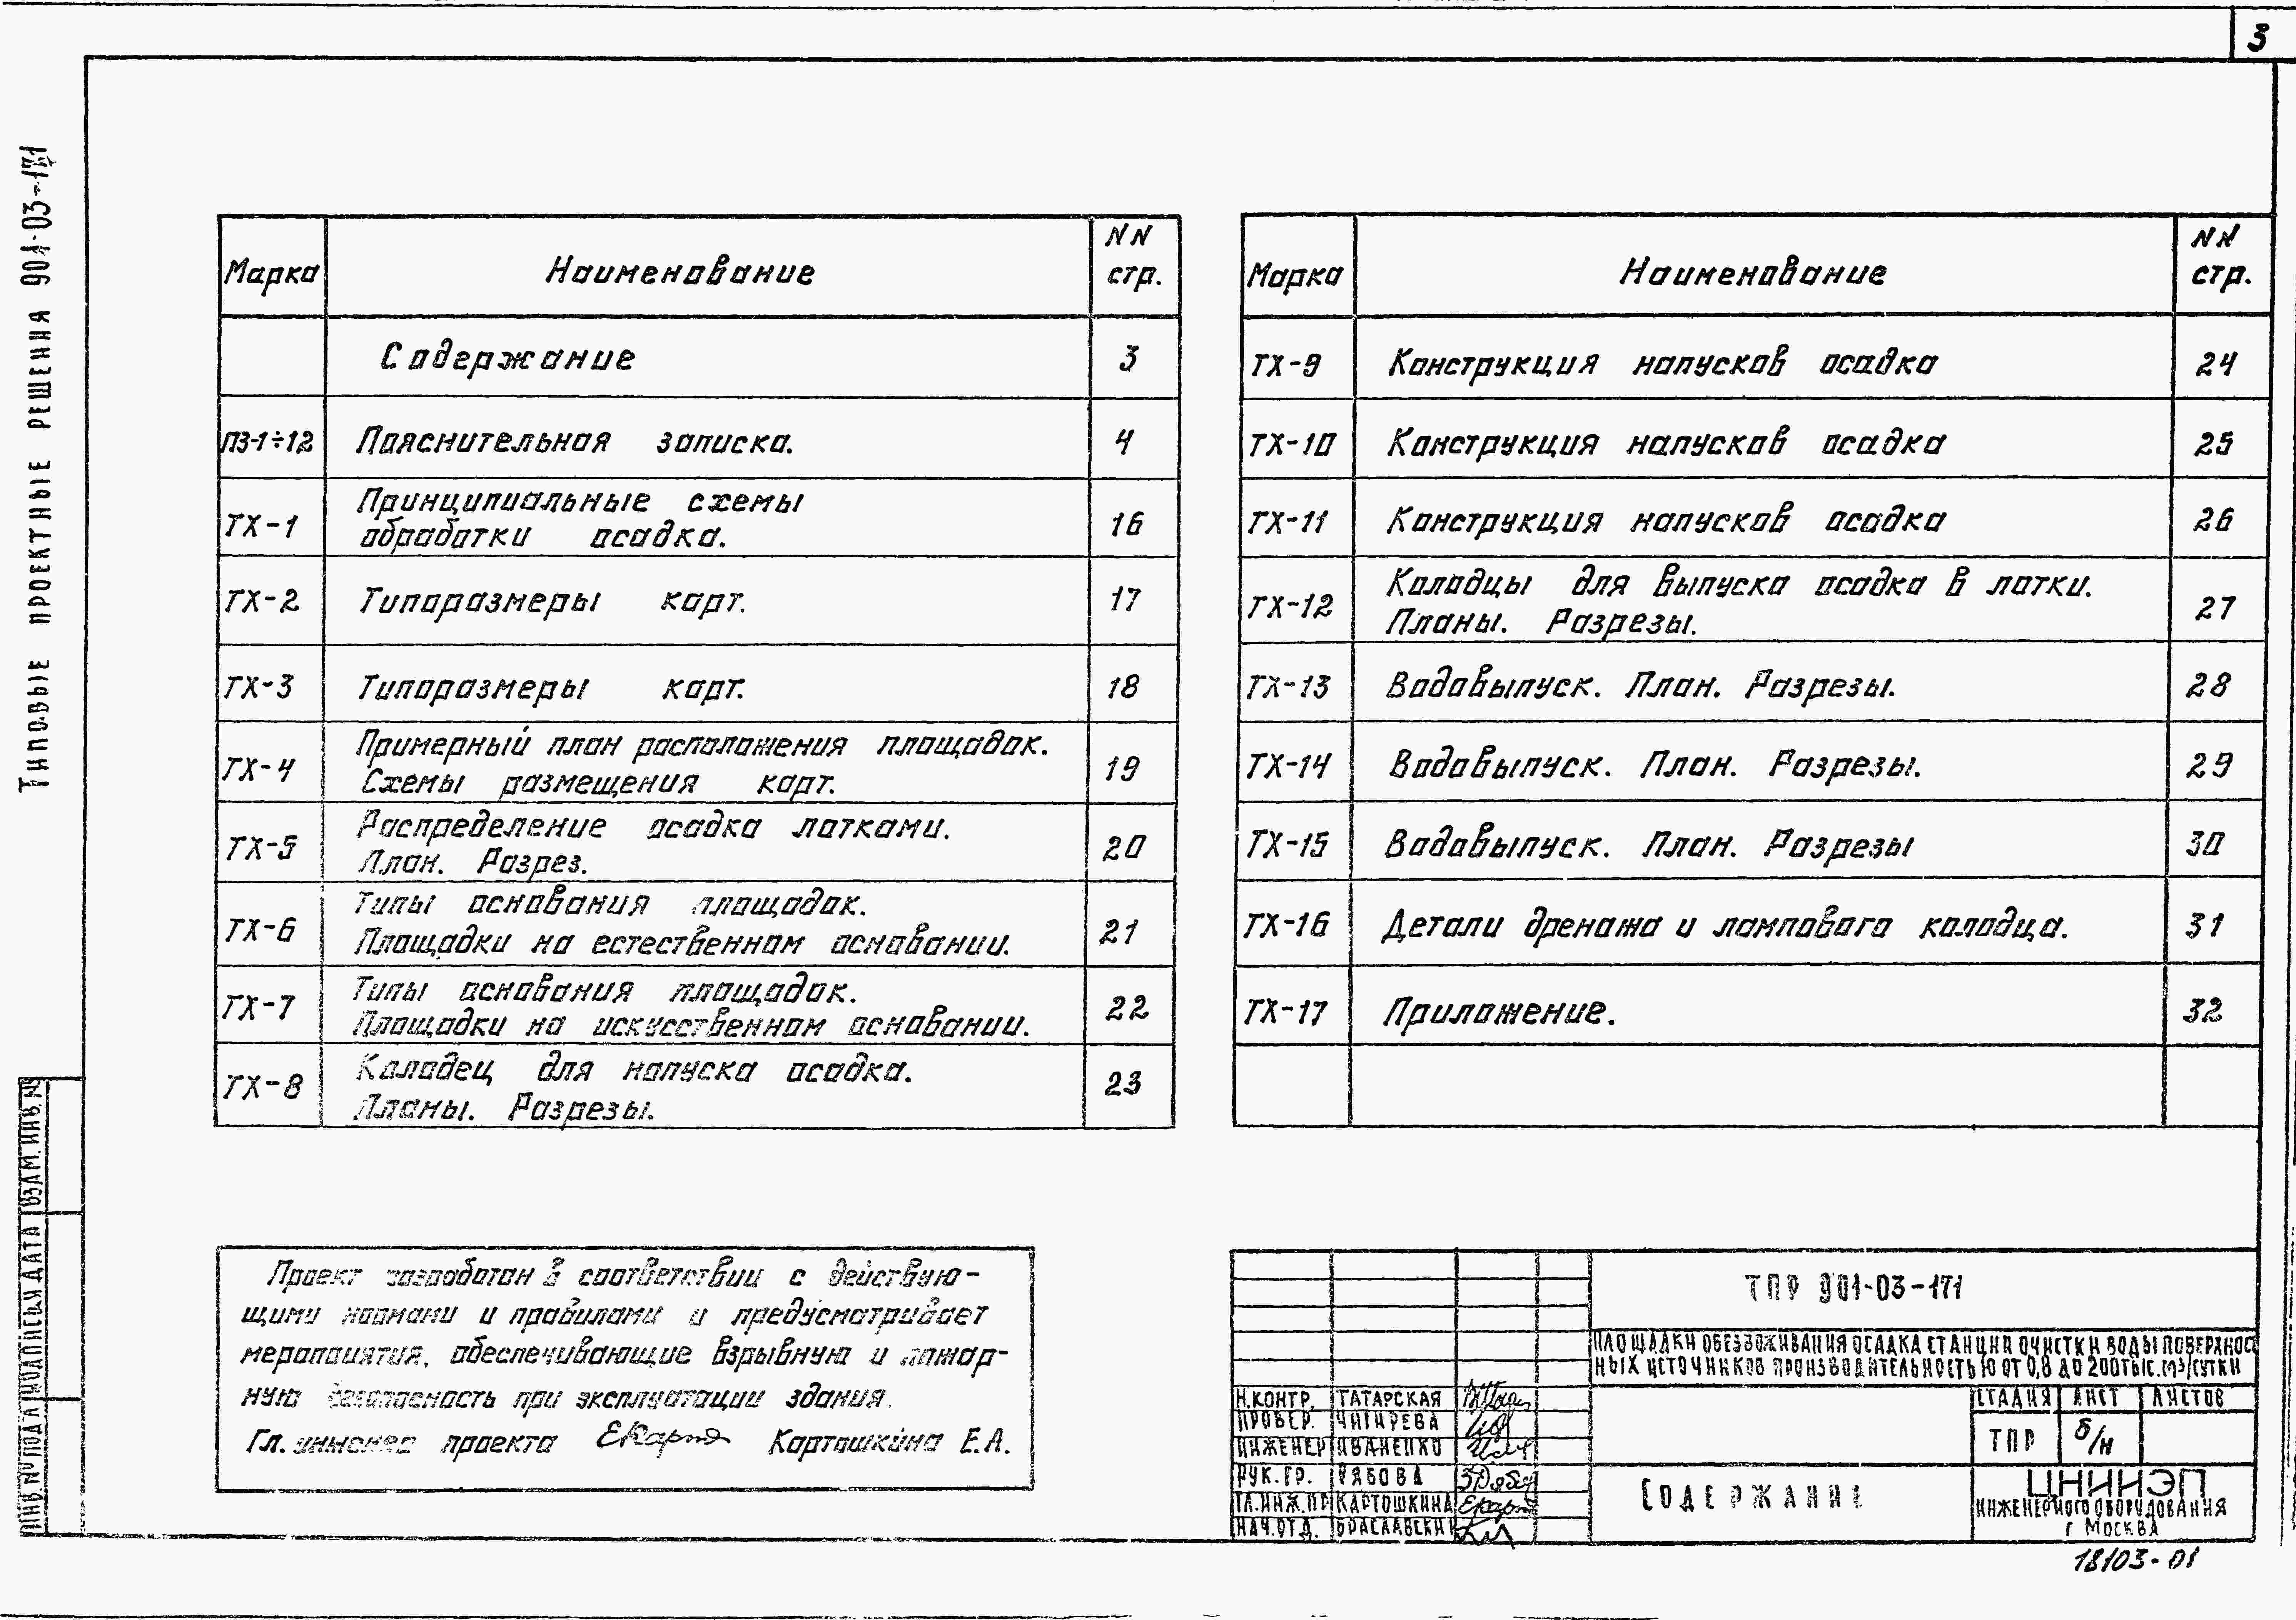 3
Типовые проектные решения 901-03-171
Марка Наименование NN стр.
Содержание 3
ПЗ-1÷12 Пояснительная записка. 4
ТХ-1 Принципиальные схемы
обработки осадка. 16
ТХ-2 Типоразмеры карт. 17
ТХ-3 Типоразмеры карт. 18
ТХ-4 Примерный план расположения площадок.
Схемы размещения карт. 19
ТХ-5 Распределение осадка лотками.
План. Разрез. 20
ТХ-6 Типы основания площадок.
Площадки на естественном основании. 21
ТХ-7 Типы основания площадок.
Площадки на искусственном основании. 22
ТХ-8 Колодец для напуска осадка.
Планы. Разрезы. 23
Марка Наименование NN стр.
ТХ-9 Конструкция напусков осадка 24
ТХ-10 Конструкция напусков осадка 25
ТХ-11 Конструкция напусков осадка 26
ТХ-12 Колодцы для выпуска осадка в лотки.
Планы. Разрезы. 27
ТХ-13 Водовыпуск. План. Разрезы. 28
ТХ-14 Водовыпуск. План. Разрезы. 29
ТХ-15 Водовыпуск. План. Разрезы 30
ТХ-16 Детали дренажа и лампового колодца. 31
ТХ-17 Приложение. 32
Проект разработан в соответствии с действую-
щими нормами и правилами и предусматривает
мероприятия, обеспечивающие взрывную и пожар-
ную безопасность при эксплуатации здания.
Гл. инженер проекта ЕКарто Картошкина Е.А.
ТПР 901-03-171
ПЛОЩАДКИ ОБЕЗВОЖИВАНИЯ ОСАДКА СТАНЦИИ ОЧИСТКИ ВОДЫ ПОВЕРХНОСТ
НЫХ ИСТОЧНИКОВ ПРОИЗВОДИТЕЛЬНОСТЬЮ ОТ 0,8 ДО 200 ТЫС. М3/СУТКИ
Н.КОНТР. ТАТАРСКАЯ
ПРОВЕР. ЧИГИРЕВА
ИНЖЕНЕР ИВАНЕНКО
РУК. ГР. РЯБОВА
ГЛ.ИНЖ.ПР КАРТОШКИНА
НАЧ.ОТД. БРАСЛАВСКИЙ
СТАДИЯ ЛИСТ ЛИСТОВ
ТПР б/н
СОДЕРЖАНИЕ
ЦНИИЭП
ИНЖЕНЕРНОГО ОБОРУДОВАНИЯ
г МОСКВА
18103-01
ИНВ.№ ПОДЛ ПОДПИСЬ И ДАТА ВЗАМ. ИНВ. №